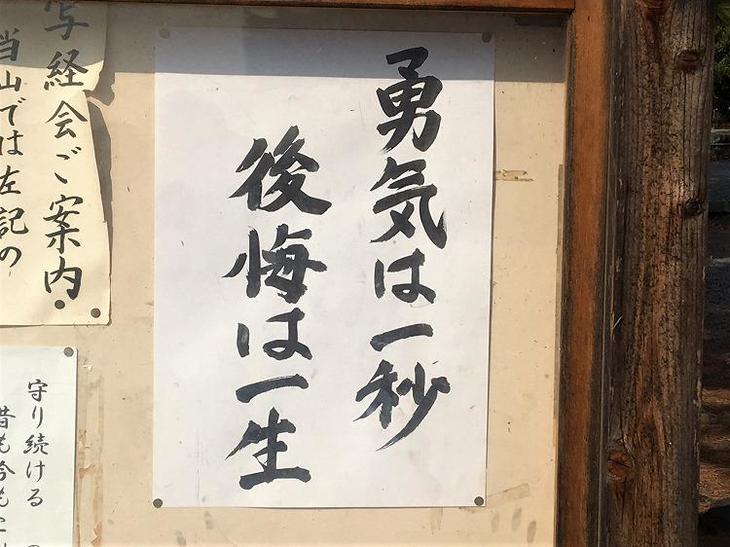 勇気は一秒
後悔は一生
写経会ご案内
当山では左記の
守り続ける
昔も今も